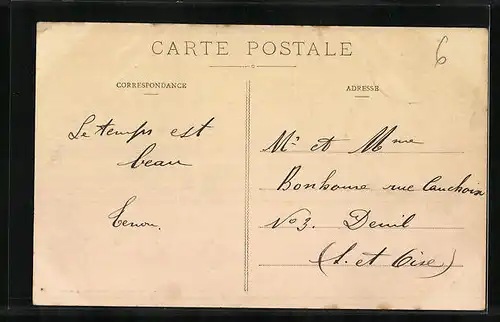 CARTE POSTALE
6
CORRESPONDANCE
ADRESSE
Le temps est
beau
Mr et Mme
Bonhome rue Cauchoix
No 3. Deuil
(S. et Oise)